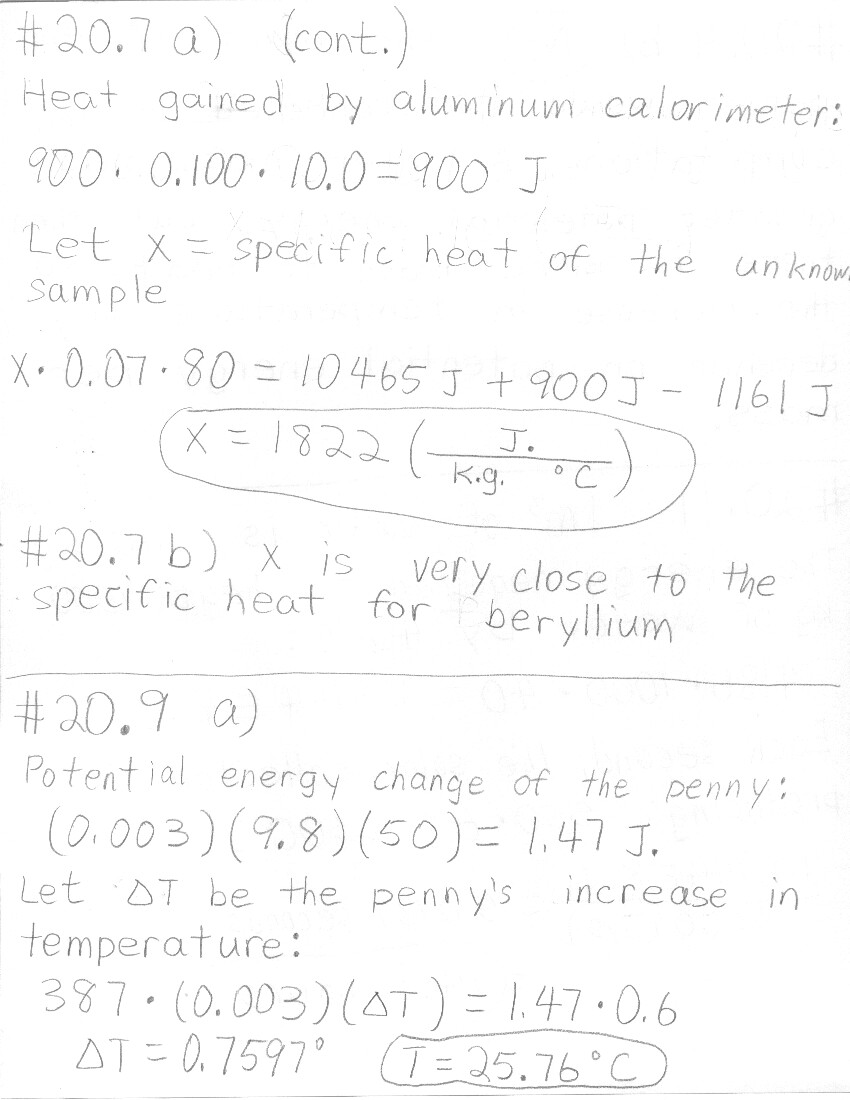 #20.7 a) (cont.)
Heat gained by aluminum calorimeter:
900 · 0.100 · 10.0 = 900 J
Let x = specific heat of the unknow
sample
x · 0.07 · 80 = 10465 J + 900 J - 1161 J
x = 1822 (J. / k.g. °C)
#20.7 b) x is very close to the
specific heat for beryllium
#20.9 a)
Potential energy change of the penny:
(0.003)(9.8)(50) = 1.47 J.
Let ΔT be the penny's increase in
temperature:
387 · (0.003)(ΔT) = 1.47 · 0.6
ΔT = 0.7597° T = 25.76°C